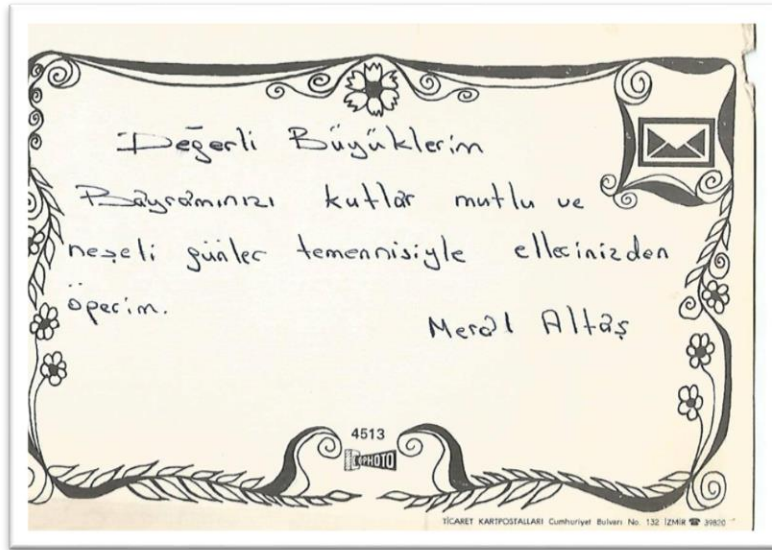 Değerli Büyüklerim
Bayramınızı kutlar mutlu ve
neşeli günler temennisiyle ellerinizden
öperim.
Meral Altaş
4513
PHOTO
TİCARET KARTPOSTALLARI Cumhuriyet Bulvarı No. 132 İZMİR ☎ 39820